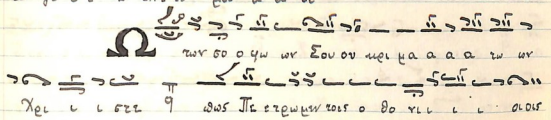 Ω των σο ο φω ων Σου ου κρι μα α α α τω ων
Χρι ι ι στε πως Πε τρωμεν τοις ο θο νι ι ι ι οις